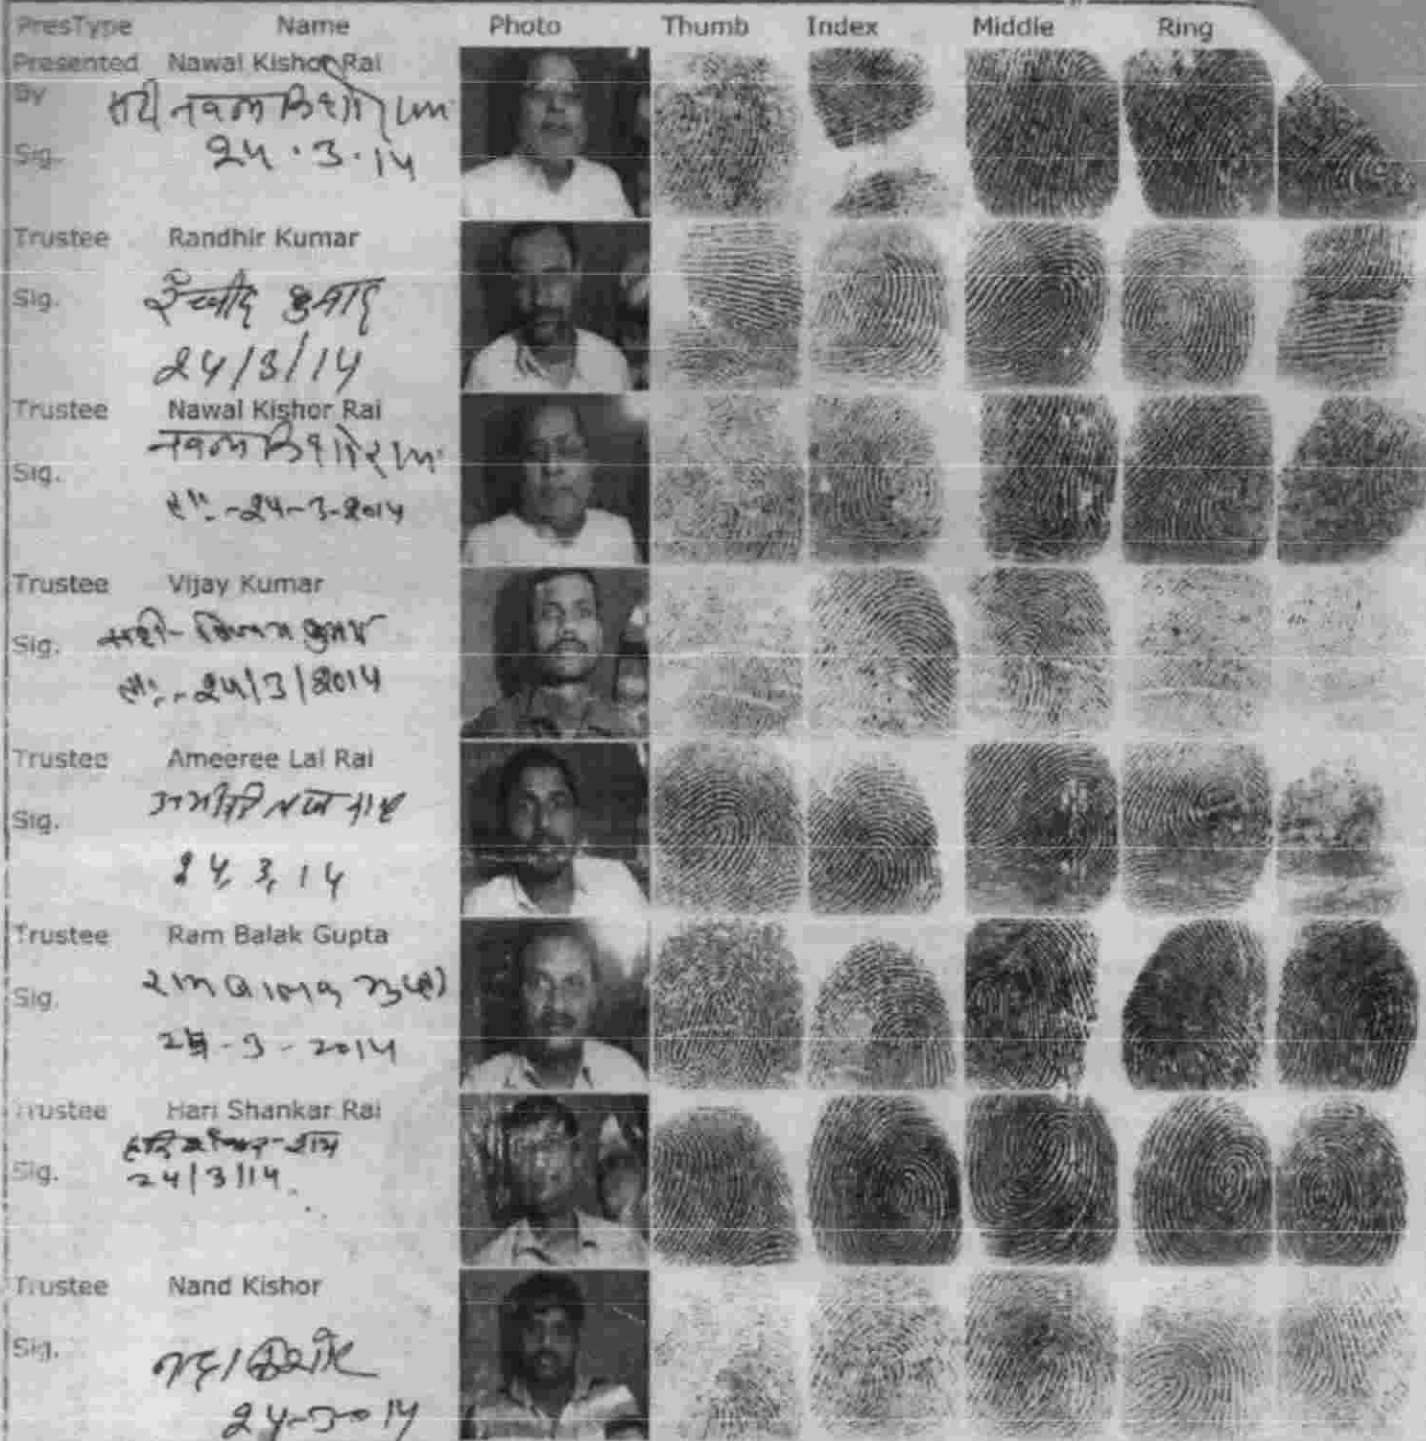 PresType Name Photo Thumb Index Middle Ring
Presented Nawal Kishor Rai
By सही नवल किशोर राय
Sig. 24.3.14
Trustee Randhir Kumar
Sig. रंधीर कुमार
24/3/14
Trustee Nawal Kishor Rai
नवल किशोर राय
Sig.
ता:-24-3-2014
Trustee Vijay Kumar
Sig. सही- विजय कुमार
ता:-24/3/2014
Trustee Ameeree Lal Rai
Sig. अमीरी लाल
24,3,14
Trustee Ram Balak Gupta
Sig. राम बालक गुप्ता
24-3-2014
Trustee Hari Shankar Rai
हरि शंकर राय
Sig. 24/3/14
Trustee Nand Kishor
Sig. नन्द किशोर
24-3-14